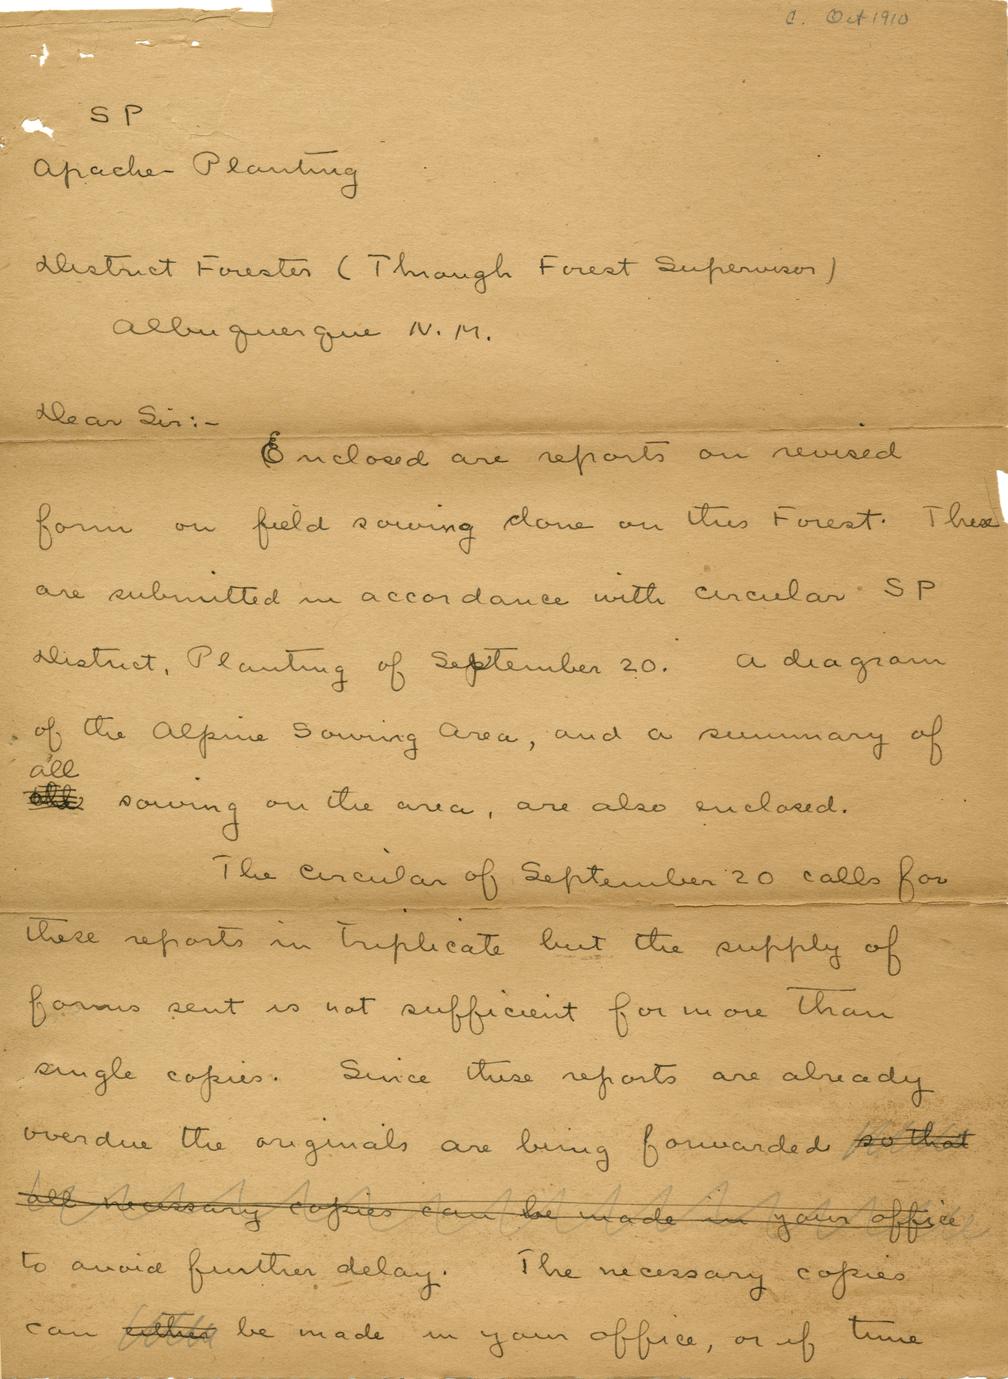 c. Oct 1910
S P
Apache - Planting
District Forester (Through Forest Supervisor)
Albuquerque N. M.
Dear Sir:-
Enclosed are reports on revised
form on field sowing done on this Forest. These
are submitted in accordance with circular S P
District, Planting of September 20. A diagram
of the Alpine Sowing Area, and a summary of
all
sowing on the area, are also enclosed.
The circular of September 20 calls for
these reports in triplicate but the supply of
forms sent is not sufficient for more than
single copies. Since these reports are already
overdue the originals are being forwarded so that
all necessary copies can be made in your office
to avoid further delay. The necessary copies
can either be made in your office, or if time